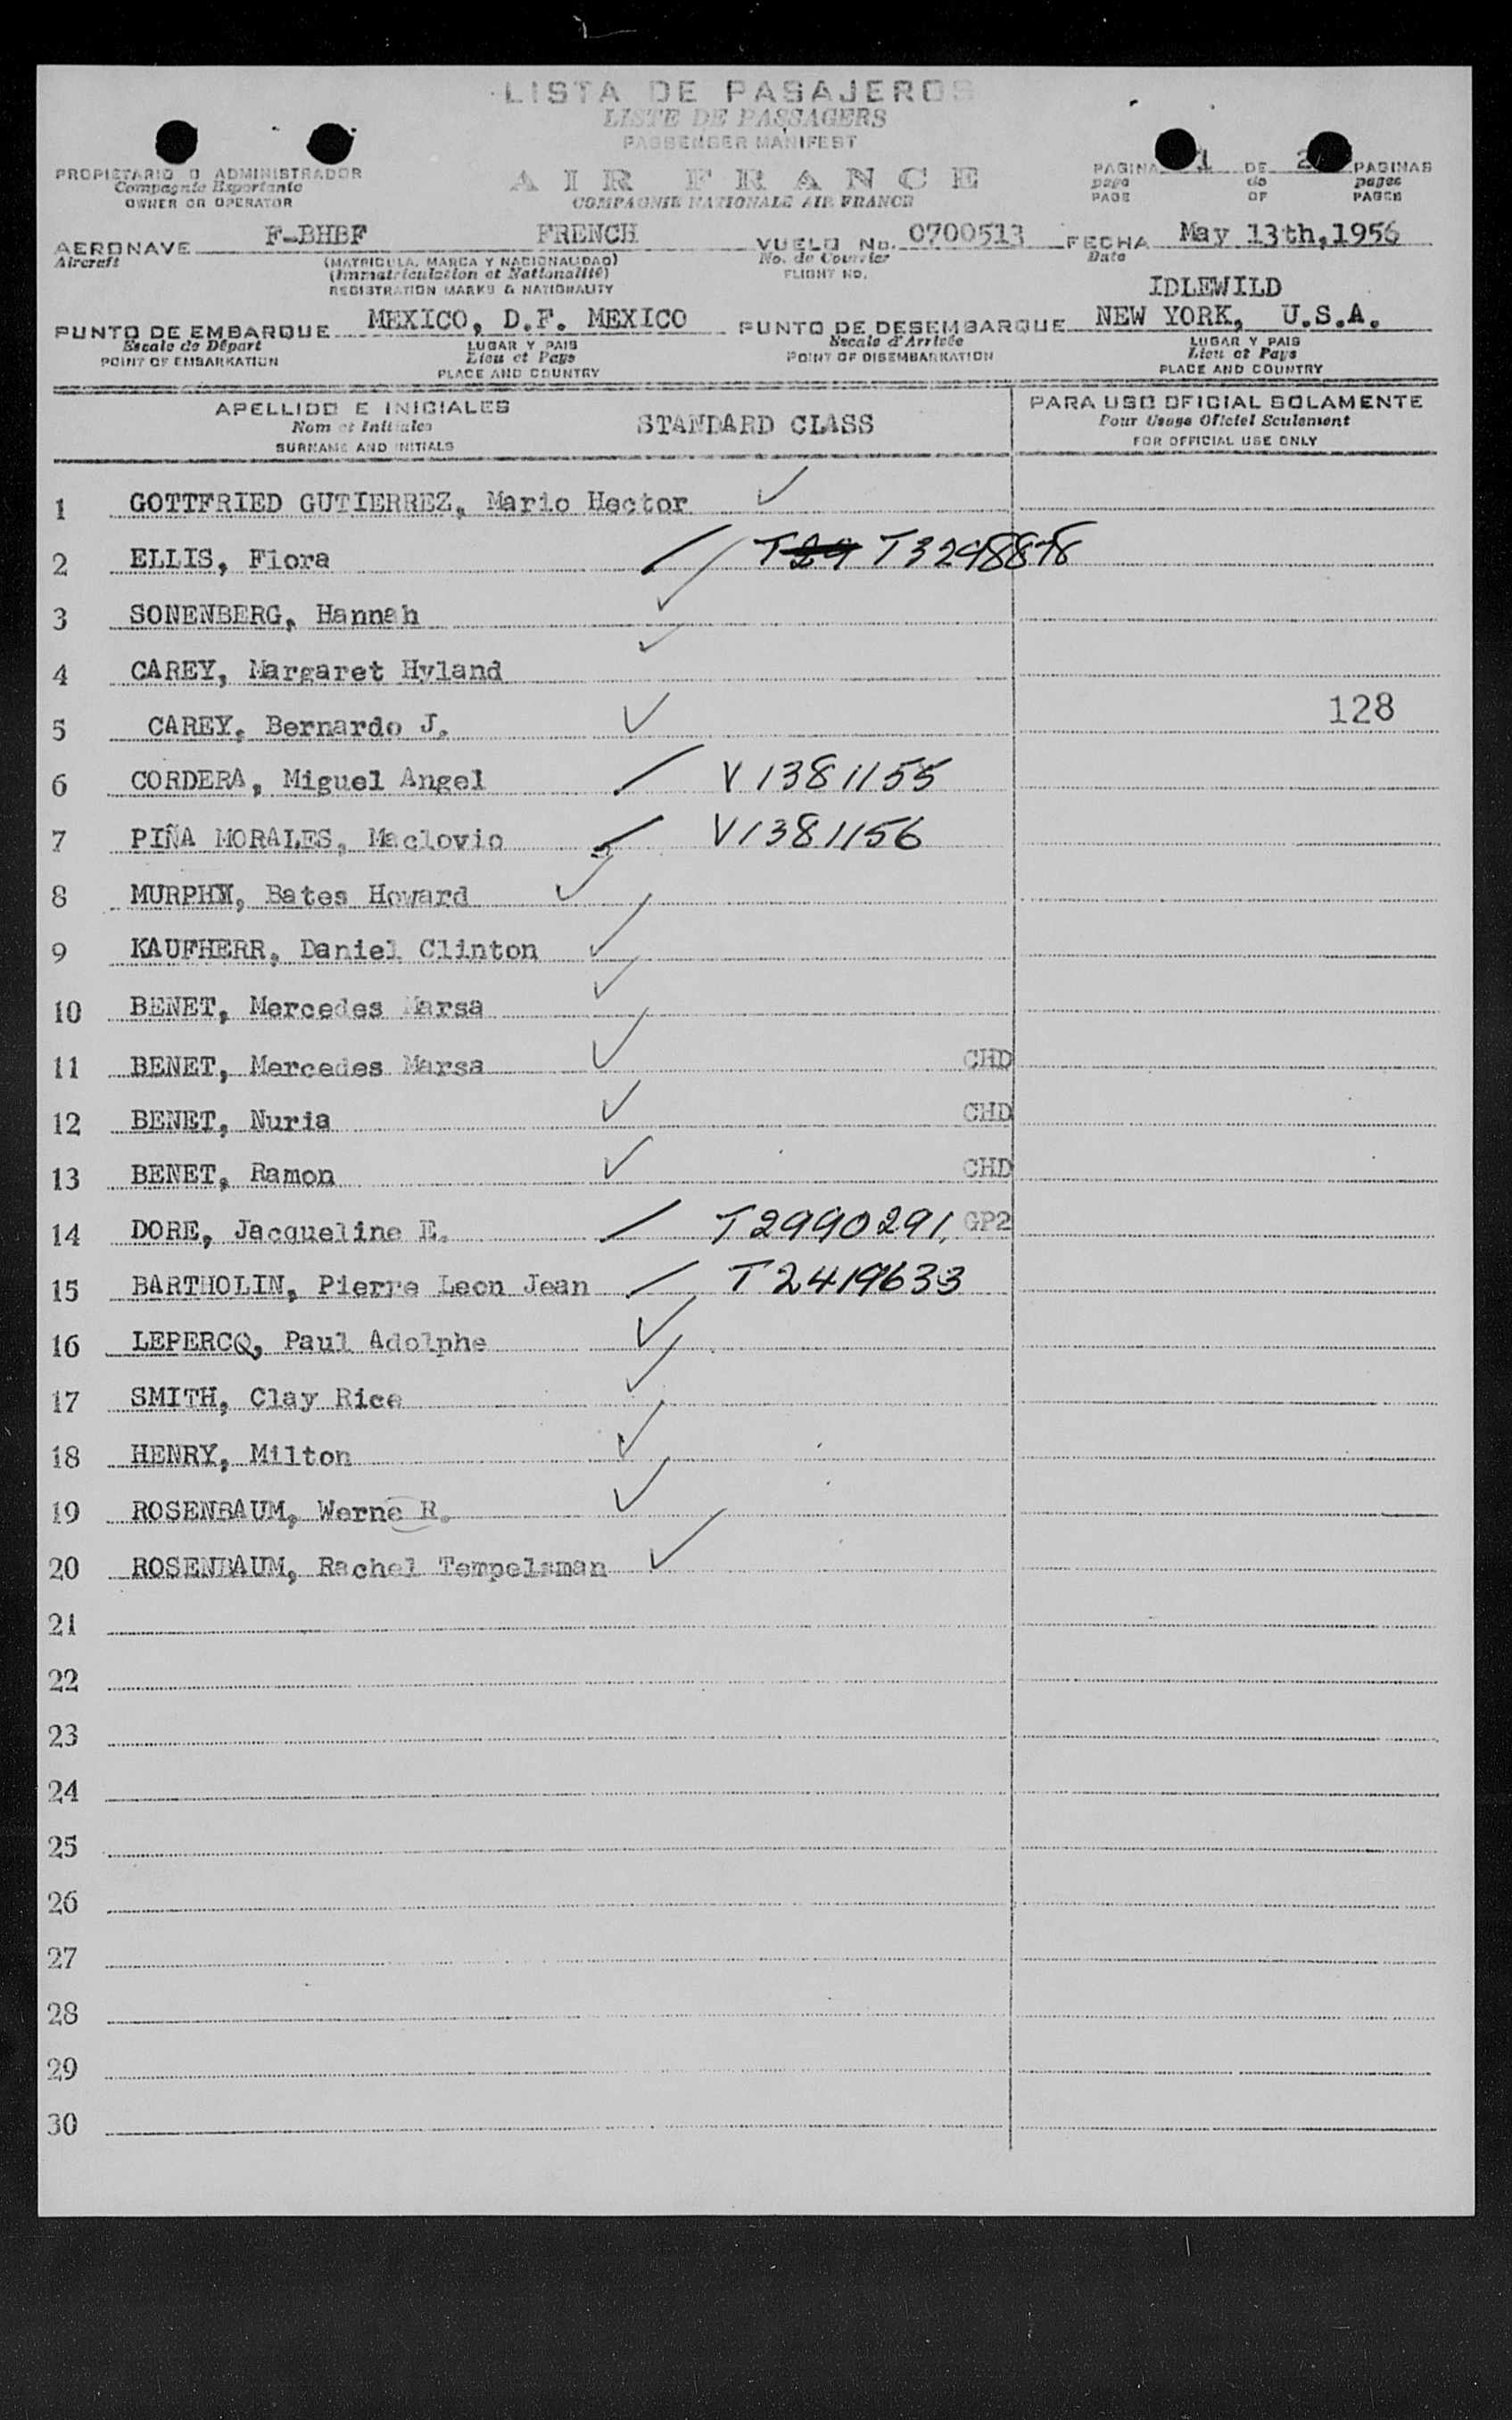 LISTA DE PASAJEROS
LISTE DE PASSAGERS
PASSENGER MANIFEST
PROPIETARIO O ADMINISTRADOR
Compagnie Exportante
OWNER OR OPERATOR
AIR FRANCE
COMPAGNIE NATIONALE AIR FRANCE
PAGINA 1 DE 2 PAGINAS
page de pages
PAGE OF PAGES
AERONAVE F-BHBF FRENCH VUELO No. 0700513 FECHA May 13th,1956
Aircraft (MATRICULA, MARCA Y NACIONALIDAD) No. de Courrier Date
(Immatriculation et Nationalité) FLIGHT NO.
REGISTRATION MARKS & NATIONALITY
IDLEWILD
PUNTO DE EMBARQUE MEXICO, D.F. MEXICO PUNTO DE DESEMBARQUE NEW YORK, U.S.A.
Escale de Départ LUGAR Y PAIS Escale d'Arrivée LUGAR Y PAIS
POINT OF EMBARKATION Lieu et Pays POINT OF DISEMBARKATION Lieu et Pays
PLACE AND COUNTRY PLACE AND COUNTRY
APELLIDO E INICIALES STANDARD CLASS PARA USO OFICIAL SOLAMENTE
Nom et Initiales Pour Usage Oficiel Seulement
SURNAME AND INITIALS FOR OFFICIAL USE ONLY
1 GOTTFRIED GUTIERREZ, Mario Hector
2 ELLIS, Flora T29 T3298878
3 SONENBERG, Hannah
4 CAREY, Margaret Hyland
5 CAREY, Bernardo J. 128
6 CORDERA, Miguel Angel V1381155
7 PIÑA MORALES, Maclovio V1381156
8 MURPHY, Bates Howard
9 KAUFHERR, Daniel Clinton
10 BENET, Mercedes Marsa
11 BENET, Mercedes Marsa CHD
12 BENET, Nuria CHD
13 BENET, Ramon CHD
14 DORE, Jacqueline E. T2990291. GP2
15 BARTHOLIN, Pierre Leon Jean T2419633
16 LEPERCQ, Paul Adolphe
17 SMITH, Clay Rice
18 HENRY, Milton
19 ROSENBAUM, Werne R.
20 ROSENBAUM, Rachel Tempelsman
21
22
23
24
25
26
27
28
29
30